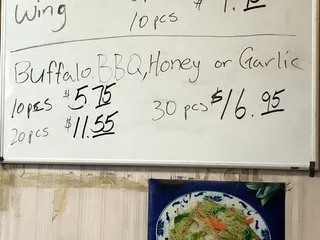 Wing
10 pcs $
Buffalo, BBQ, Honey or Garlic
10 pcs $5.75
30 pcs $16.95
20 pcs $11.55